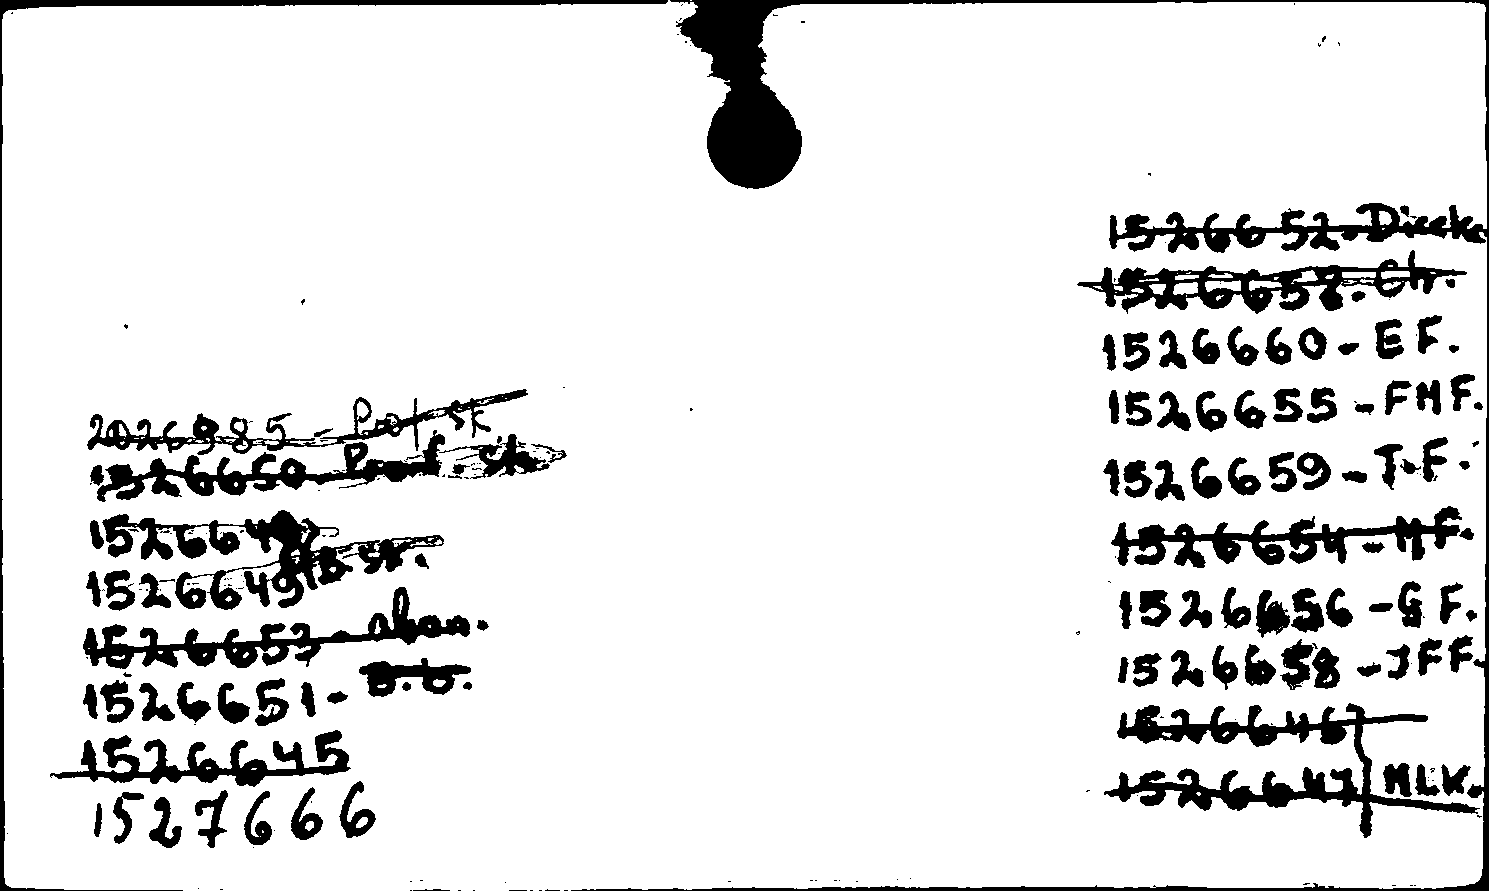 2026985 - Prof. sk
1526650 - Prof. sk.
1526648
1526649
1526653 - aban.
1526651 - B.b.
1526645
1527666
1526652 - Direk
1526657. Ch.
1526660 - EF.
1526655 - FMF.
1526659 - T.F.
1526654 - MF.
1526656 - GF.
1526658 - JFF.
1526646
1526647 MLK.